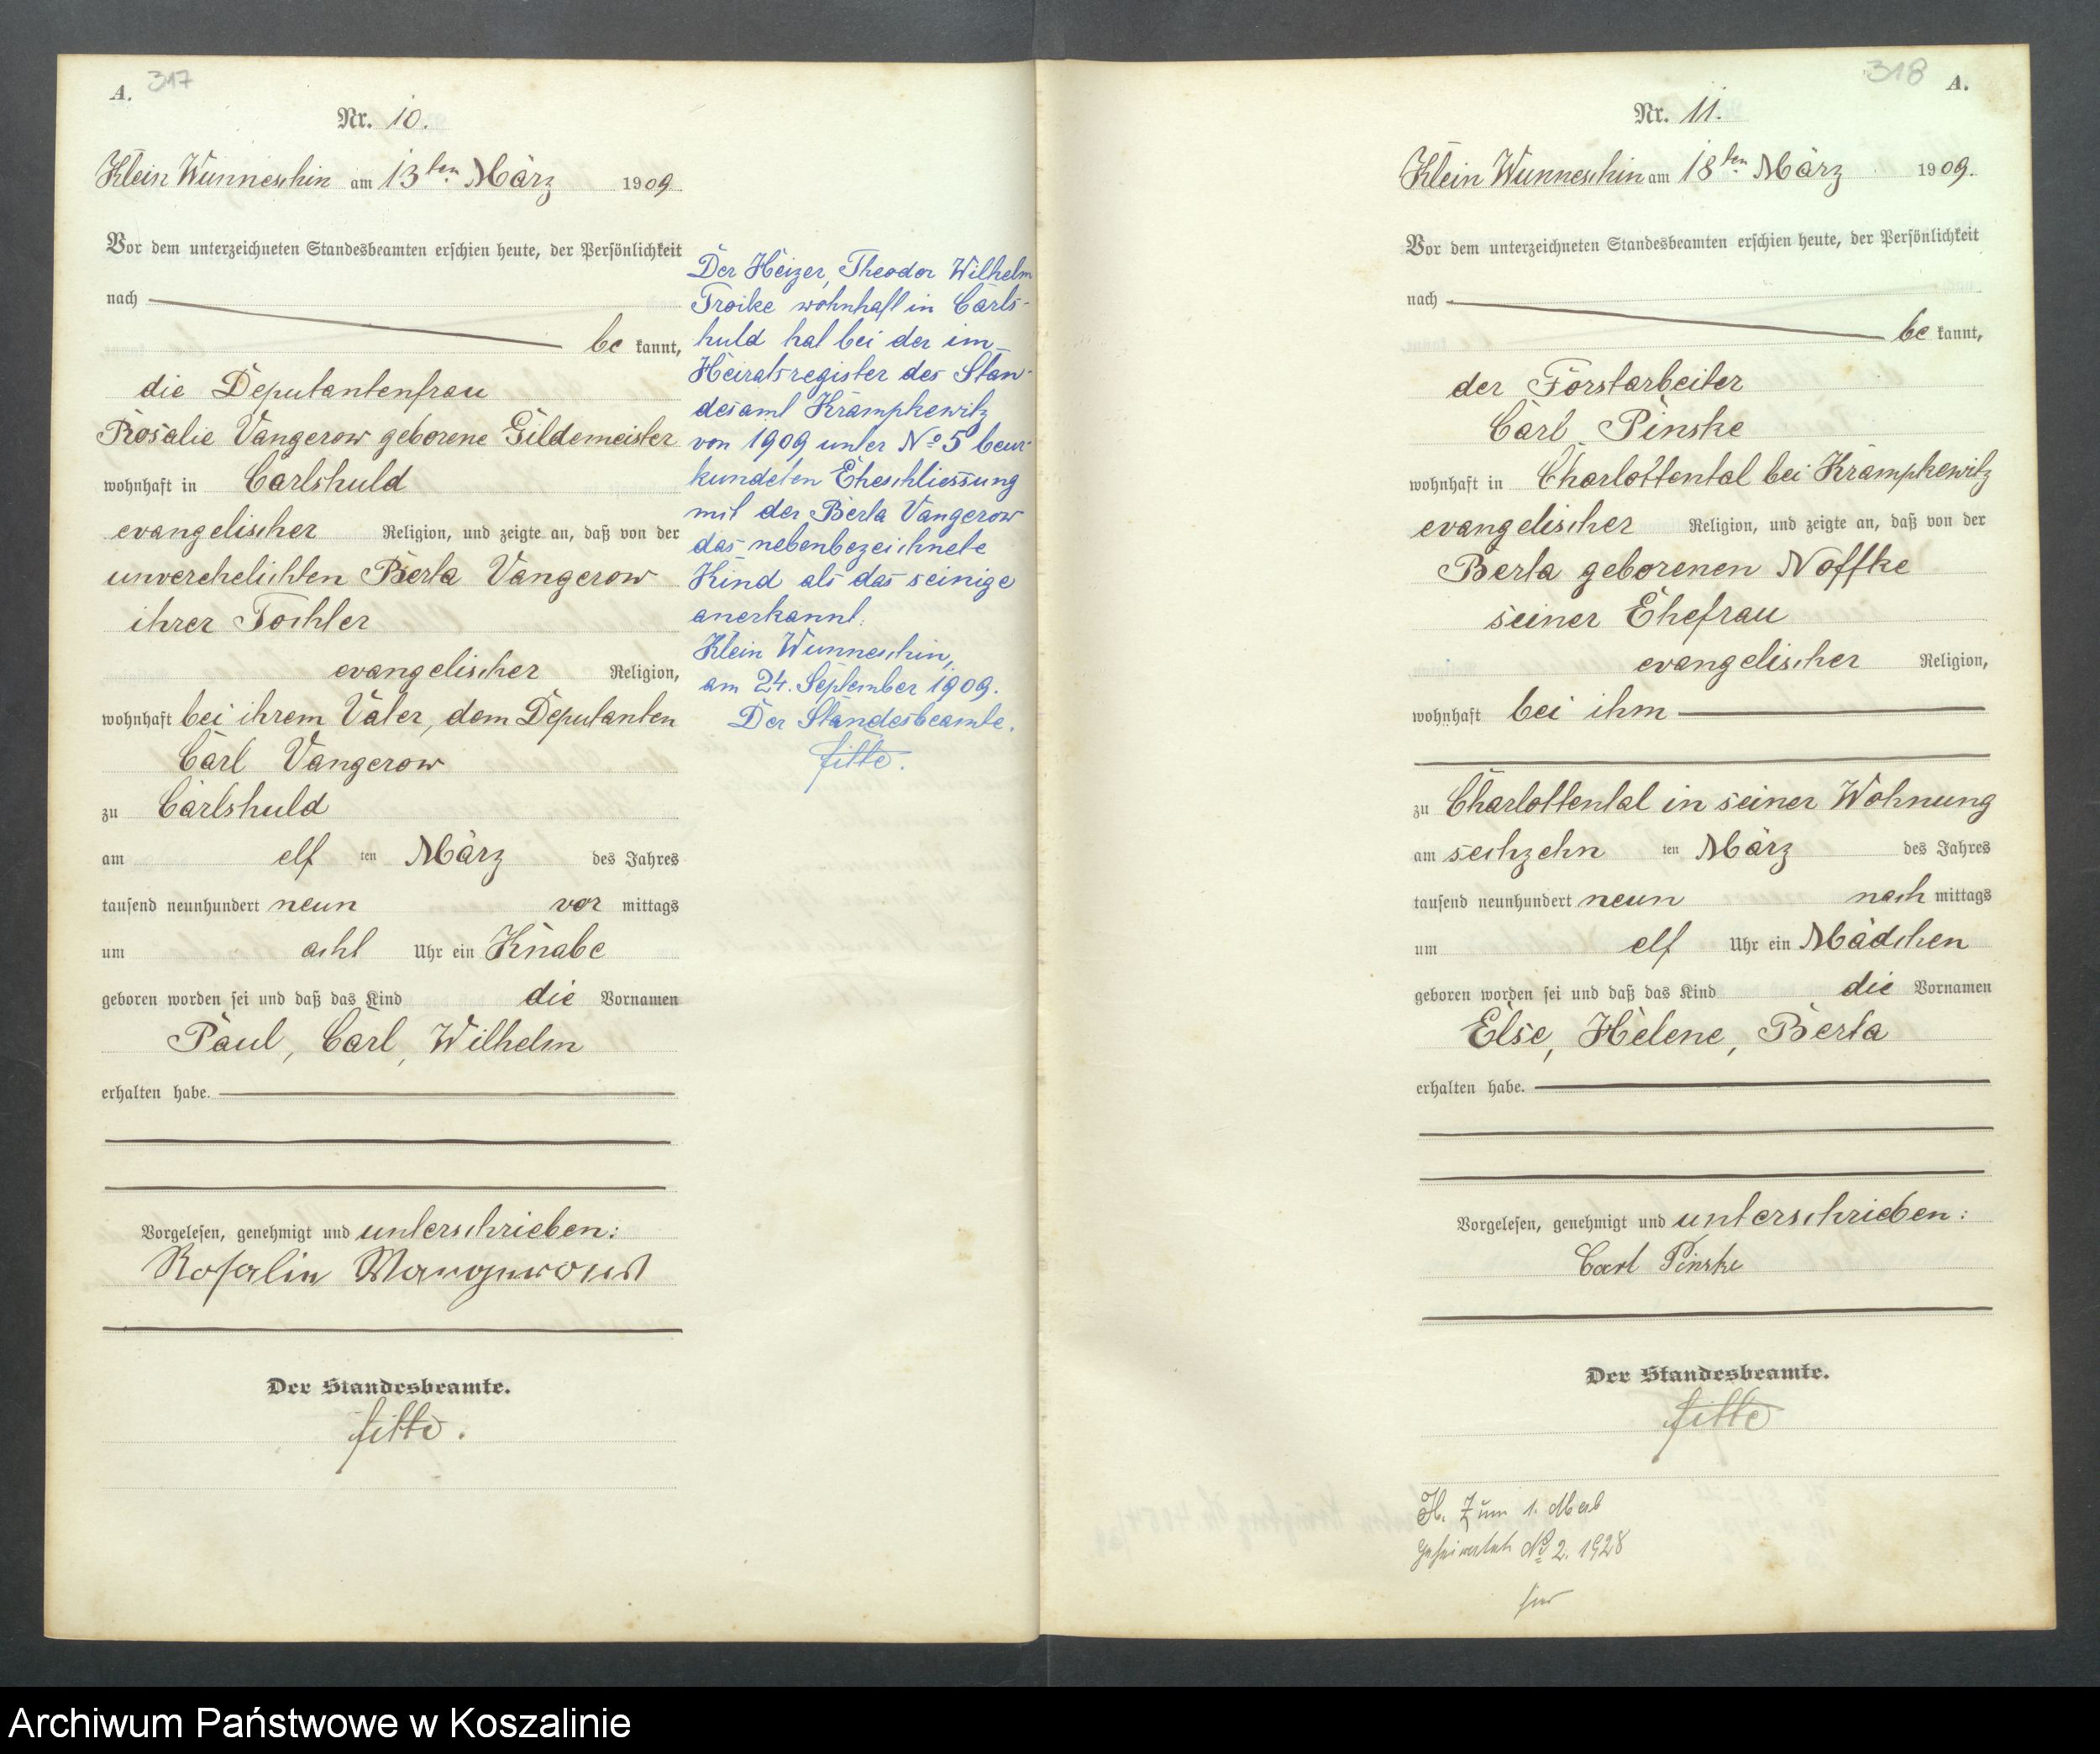 A. 317
Nr. 10.
Klein Wunneschin am 13ten März 1909
Vor dem unterzeichneten Standesbeamten erschien heute, der Persönlichkeit
nach
be kannt,
die Deputantenfrau
Rosalie Vangerow geborene Gildemeister
wohnhaft in Carlshuld
evangelischer Religion, und zeigte an, daß von der
unverehelichten Berta Vangerow
ihrer Tochter
evangelischer Religion,
wohnhaft bei ihrem Vater, dem Deputanten
Carl Vangerow
zu Carlshuld
am elf ten März des Jahres
tausend neunhundert neun vor mittags
um acht Uhr ein Knabe
geboren worden sei und daß das Kind die Vornamen
Paul, Carl, Wilhelm
erhalten habe.
Vorgelesen, genehmigt und unterschrieben:
Rosalin
Der Standesbeamte.
Der Heizer, Theodor Wilhelm
Troike wohnhaft in Carls-
huld hat bei der im
Heiratsregister des Stan-
desamt Krampkewitz
von 1909 unter No 5 beur-
kundeten Eheschliessung
mit der Berta Vangerow
das nebenbezeichnete
Kind als das seinige
anerkannt.
Klein Wunneschin,
am 24. September 1909.
Der Standesbeamte.
318 A.
Nr. 11.
Klein Wunneschin am 18ten März 1909.
Vor dem unterzeichneten Standesbeamten erschien heute, der Persönlichkeit
nach
be kannt,
der Forstarbeiter
Carl Pinske
wohnhaft in Charlottental bei Krampkewitz
evangelischer Religion, und zeigte an, daß von der
Berta geborenen Noffke
seiner Ehefrau
evangelischer Religion,
wohnhaft bei ihm
zu Charlottental in seiner Wohnung
am sechzehn ten März des Jahres
tausend neunhundert neun nach mittags
um elf Uhr ein Mädchen
geboren worden sei und daß das Kind die Vornamen
Else, Helene, Berta
erhalten habe.
Vorgelesen, genehmigt und unterschrieben:
Carl Pinske
Der Standesbeamte.
H. Zum 1. Mal
geheiratet No 2. 1928
Archiwum Państwowe w Koszalinie